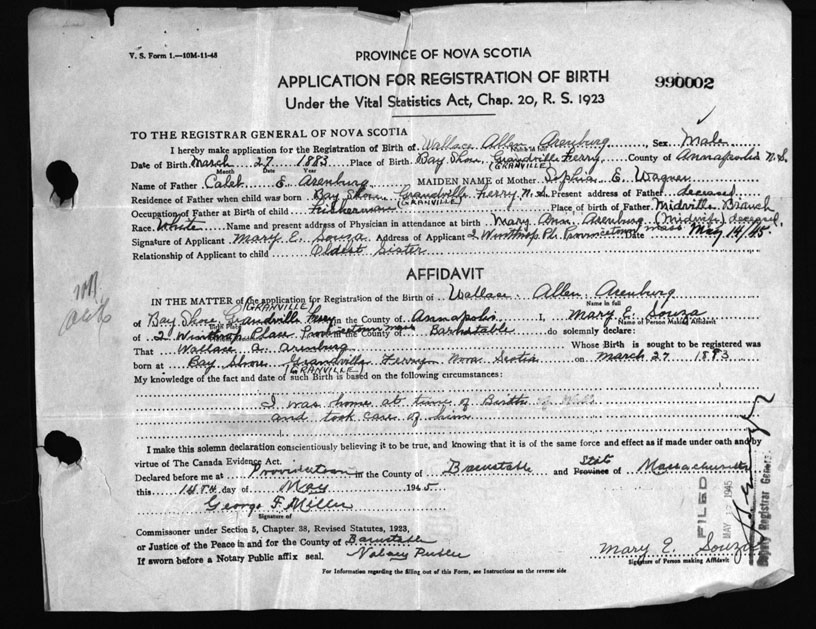 V. S. Form 1.—10M-11-43
PROVINCE OF NOVA SCOTIA
APPLICATION FOR REGISTRATION OF BIRTH
990002
Under the Vital Statistics Act, Chap. 20, R. S. 1923
TO THE REGISTRAR GENERAL OF NOVA SCOTIA
I hereby make application for the Registration of Birth of Wallace Allen Arenburg, Sex Male
Date of Birth March 27 1883 Place of Birth Bay Shore, Grandville Ferry, County of Annapolis N.S.
Month Date Year (GRANVILLE)
Name of Father Caleb E. Arenburg MAIDEN NAME of Mother Sophia E. Wagner
Residence of Father when child was born Bay Shore, Grandville Ferry N.S. Present address of Father deceased
(GRANVILLE)
Occupation of Father at Birth of child Fisherman Place of birth of Father Midville Branch
Race White Name and present address of Physician in attendance at birth Mary Ann Arenburg (Midwife) deceased
Signature of Applicant Mary E. Souza Address of Applicant 2 Winthrop Pl. Provincetown Mass Date May 14/45
Relationship of Applicant to child Oldest Sister
AFFIDAVIT
IN THE MATTER of the application for Registration of the Birth of Wallace Allen Arenburg
(GRANVILLE) Name in full
of Bay Shore Grandville Ferry in the County of Annapolis I, Mary E. Souza
Name of Person Making Affidavit
of 2 Winthrop Place Provincetown Mass in the County of Barnstable do solemnly declare:
That Wallace A. Arenburg Whose Birth is sought to be registered was
born at Bay Shore Grandville Ferry Nova Scotia on March 27 1883
(GRANVILLE)
My knowledge of the fact and date of such Birth is based on the following circumstances:
I was home at time of Birth of
and took care of him
I make this solemn declaration conscientiously believing it to be true, and knowing that it is of the same force and effect as if made under oath and by
virtue of The Canada Evidence Act.
Declared before me at Provincetown in the County of Barnstable and Province State of Massachusetts
this 14th day of May 1945
George F. Miller
Signature of
Commissioner under Section 5, Chapter 38, Revised Statutes, 1923,
or Justice of the Peace in and for the County of Barnstable
If sworn before a Notary Public affix seal. Notary Public
Mary E. Souza
Signature of Person making Affidavit
For Information regarding the filling out of this Form, see Instructions on the reverse side
FILED
MAY 1945
Deputy Registrar General